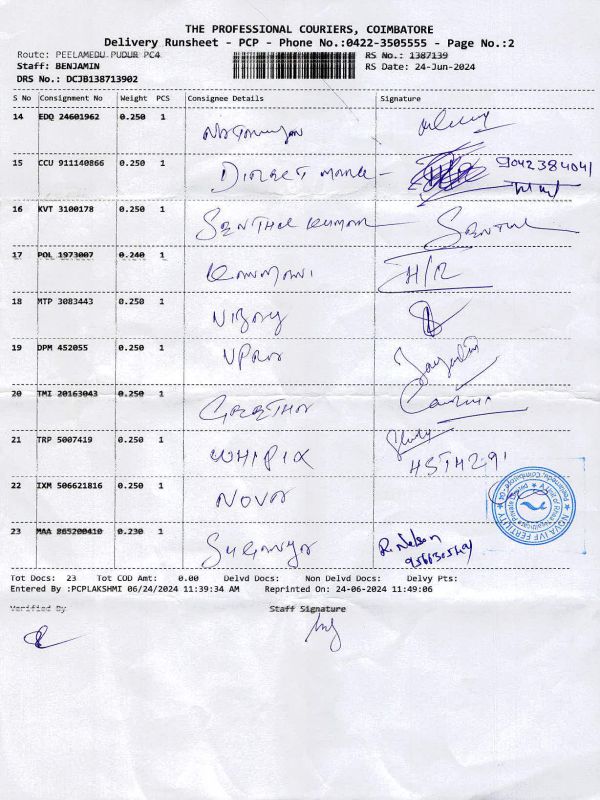 THE PROFESSIONAL COURIERS, COIMBATORE
Delivery Runsheet - PCP - Phone No.:0422-3505555 - Page No.:2
Route: PEELAMEDU PUDUR PC4 RS No.: 1387139
Staff: BENJAMIN RS Date: 24-Jun-2024
DRS No.: DCJB138713902
S No Consignment No Weight PCS Consignee Details Signature
14 EDQ 24601962 0.250 1
15 CCU 911140866 0.250 1 DIRECT 9042384041
16 KVT 3100178 0.250 1 SENTHIL KUMAR SENTHIL
17 POL 1973007 0.240 1 KANMANI H/R
18 MTP 3083443 0.250 1 VIJAY
19 DPM 452055 0.250 1
20 TMI 20163043 0.250 1 GEETHA
21 TRP 5007419 0.250 1 WHIPIX
22 IXM 506621816 0.250 1 NOVA
NOVA IVF FERTILITY
23 MAA 865200410 0.230 1 SUGANYA R. Nelson
Tot Docs: 23 Tot COD Amt: 0.00 Delvd Docs: Non Delvd Docs: Delvy Pts:
Entered By :PCPLAKSHMI 06/24/2024 11:39:34 AM Reprinted On: 24-06-2024 11:49:06
Verified By Staff Signature